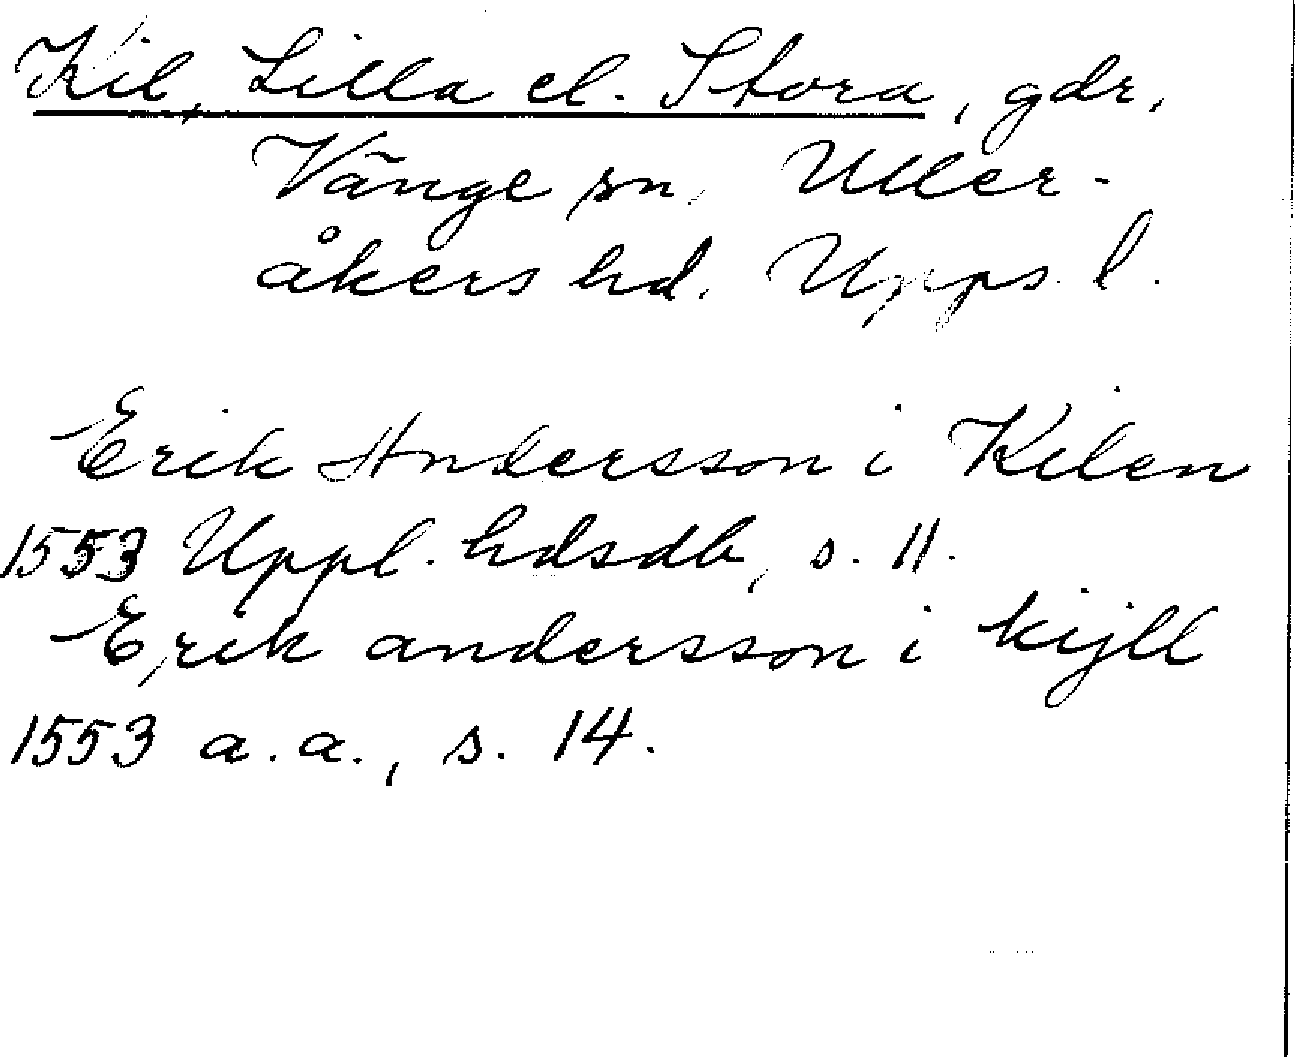 Kil, Lilla el. Stora, gdr,
Vänge sn, Uller-
åkers hd. Upps. l.
Erik Andersson i Kilen
1553 Uppl. hdsdb, s. 11.
Erik andersson i kijll
1553 a.a., s. 14.